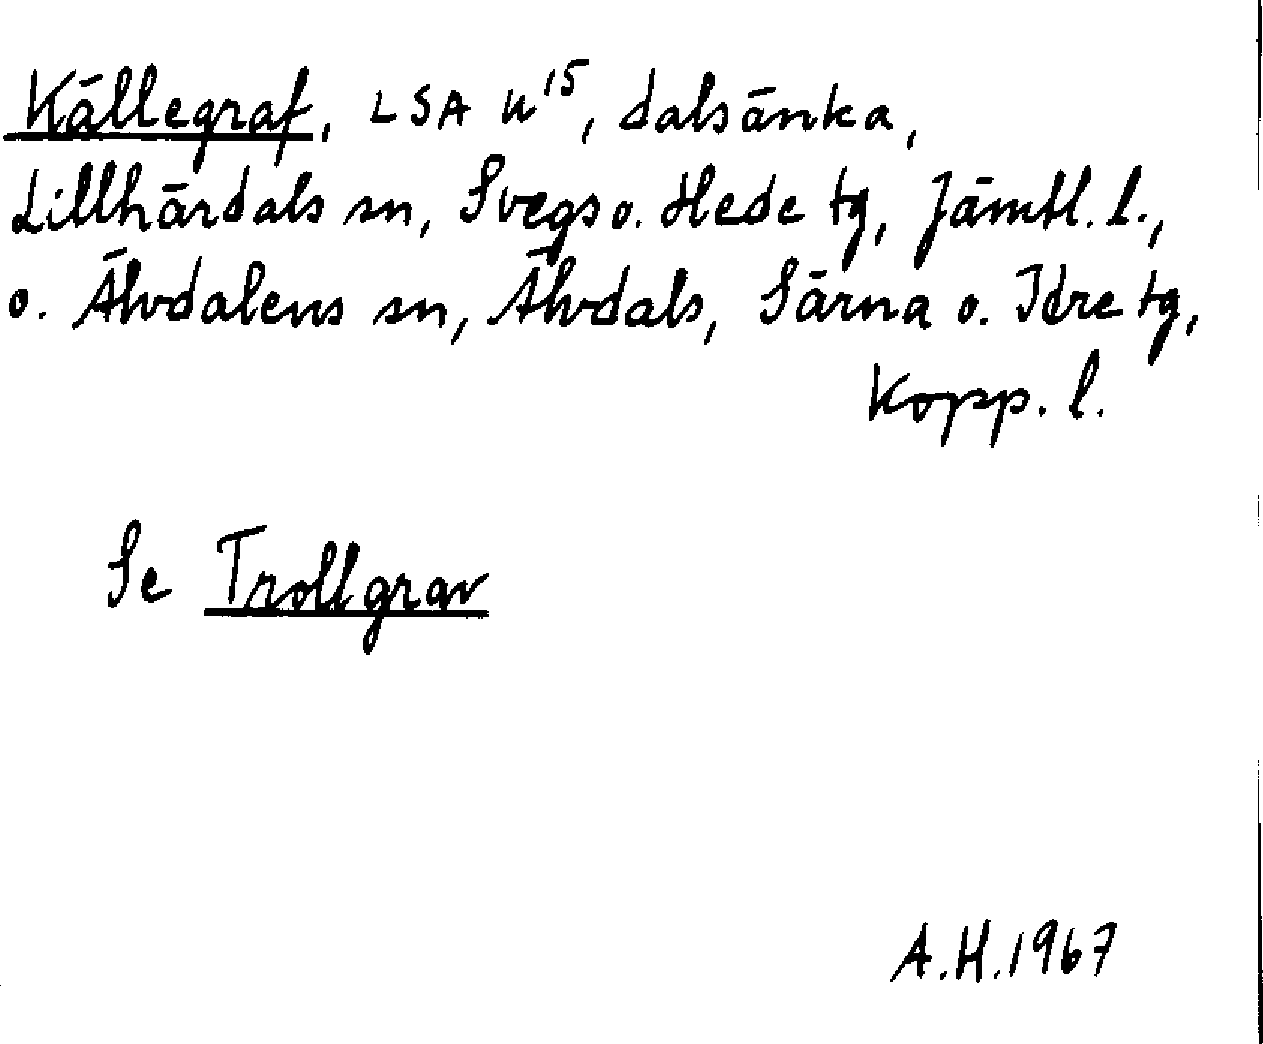 Källegraf, LSA U¹⁵, dalsänka,
Lillhärdals sn, Svegs o. Hede tg, Jämtl. l.,
o. Älvdalens sn, Älvdals, Särna o. Idre tg,
Kopp. l.
Se Trollgrav
A.H.1967